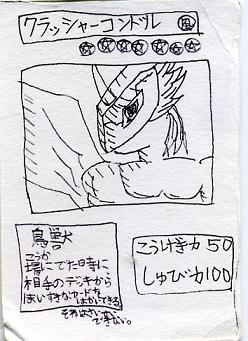 クラッシャーコンドル 風
鳥獣
こうか
場にでた時に
相手のデッキから
はいすきなカードを
はかいできる
それはさい
できない。
こうげき力 50
しゅび力 100